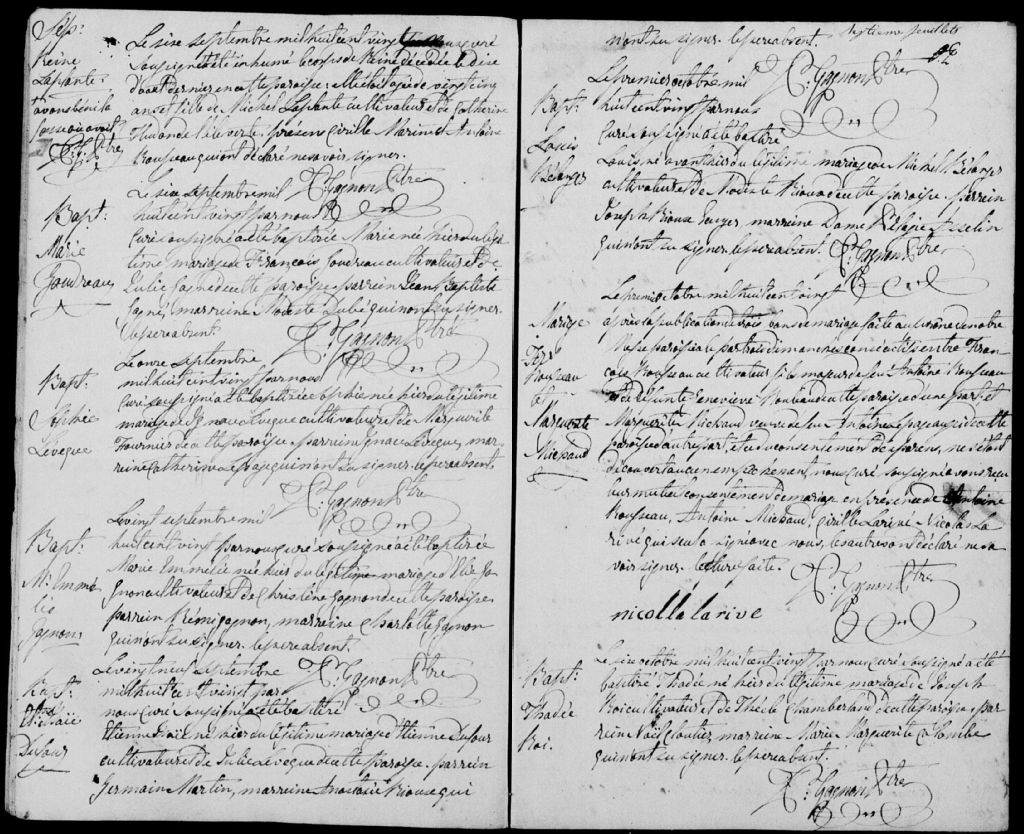 Sep:
Reine
Laplante
Le six septembre mil huit cent vingt nous curé
soussigné a été inhumé le corps de Reine décédée le dix
d'aout dernier en cette paroisse elle était agée de vingt cinq
ans et fille de Michel Laplante cultivateur et de Catherine
présens Cirille Marin et Antoine
Rousseau qui ont déclaré ne savoir signer.
C: Gagnon Ptre
Bapt:
Marie
Gaudreau
Le six septembre mil
huit cent vingt par nous
curé soussigné a été baptisée Marie née hier du légi
time mariage de François Goudreau cultivateur et de
Julie Gagné de cette paroisse parrein Jean Baptiste
Gagné, marreine Modeste Dubé qui n'ont su signer.
le pere absent.
C: Gagnon Ptre
Bapt:
Sophie
Lévêque
Le onze septembre
mil huit cent vingt par nous
curé soussigné a été baptisée Sophie née hier du légitime
mariage d'Ignace Lévêque cultivateur et de Marguerite
Fournier de cette paroisse parrein Ignace Levêque, mar
reine Catherine qui n'ont su signer. le pere absent.
C: Gagnon Ptre
Bapt:
M: Emmé
lie
Gagnon
Le vingt septembre mil
huit cent vingt par nous curé soussigné a été baptisée
Marie Emmélie née hier du légitime mariage d'Elie Ga
gnon cultivateur et de Christine Gagnon de cette paroisse
parrein Rémi Gagnon, marreine Charlotte Gagnon
qui n'ont su signer. le pere absent.
C: Gagnon Ptre
Bapt:
Dufour
Le vingt neuf septembre
mil huit cent vingt par
nous curé soussigné a été baptisé
Etienne né hier du légitime mariage d'Etienne Dufour
cultivateur et de Julie Levêque de cette paroisse. parrein
Germaine Martin, marreine Anastasie Rioux qui
septieme feuillets
n'ont su signer. le pere absent.
C: Gagnon Ptre
Bapt:
Louis
Bélanger
Le premier octobre mil
huit cent vingt par nous
curé soussigné a été baptisé
Louis, né avant hier du légitime mariage de Michel Bélanger
cultivateur et de Modeste Rioux de cette paroisse parrein
Joseph Rioux marreine Dame Asselin
qui n'ont su signer. le pere absent.
C: Gagnon Ptre
Mariage
Frs
Rousseau
&
Marguerite
Michaud
Le premier octobre mil huit cent vingt
après la publication de trois bans de mariage faite au prône de notre
Messe paroissiale par trois dimanches consécutifs entre Fran
çois Rousseau cultivateur fils majeur de feu Antoine Rousseau
et de défunte Genevieve de cette paroisse d'une part et
Marguerite Michaud veuve de feu Antoine aussi de cette
paroisse d'autre part, et du consentement des parens, ne s'étant
découvert aucun empêchement, nous curé soussigné avons reçu
leur mutuel consentement de mariage en présence de Antoine
Rousseau, Antoine Michaud, Cirille Larivé Nicolas La
rivé qui seul a signé avec nous, les autres ont déclaré ne sa
voir signer. lecture faite.
C: Gagnon Ptre
nicolla larive
Bapt:
Thadée
Roi.
Le six octobre mil huit cent vingt par nous curé soussigné a été
baptisé Thadé né hier du légitime mariage de Joseph
Roi cultivateur et de Thecle Chamberland de cette paroisse par
rein Noël Cloutier, marreine Marie Marguerite Colombe
qui n'ont su signer. le pere absent.
C: Gagnon Ptre